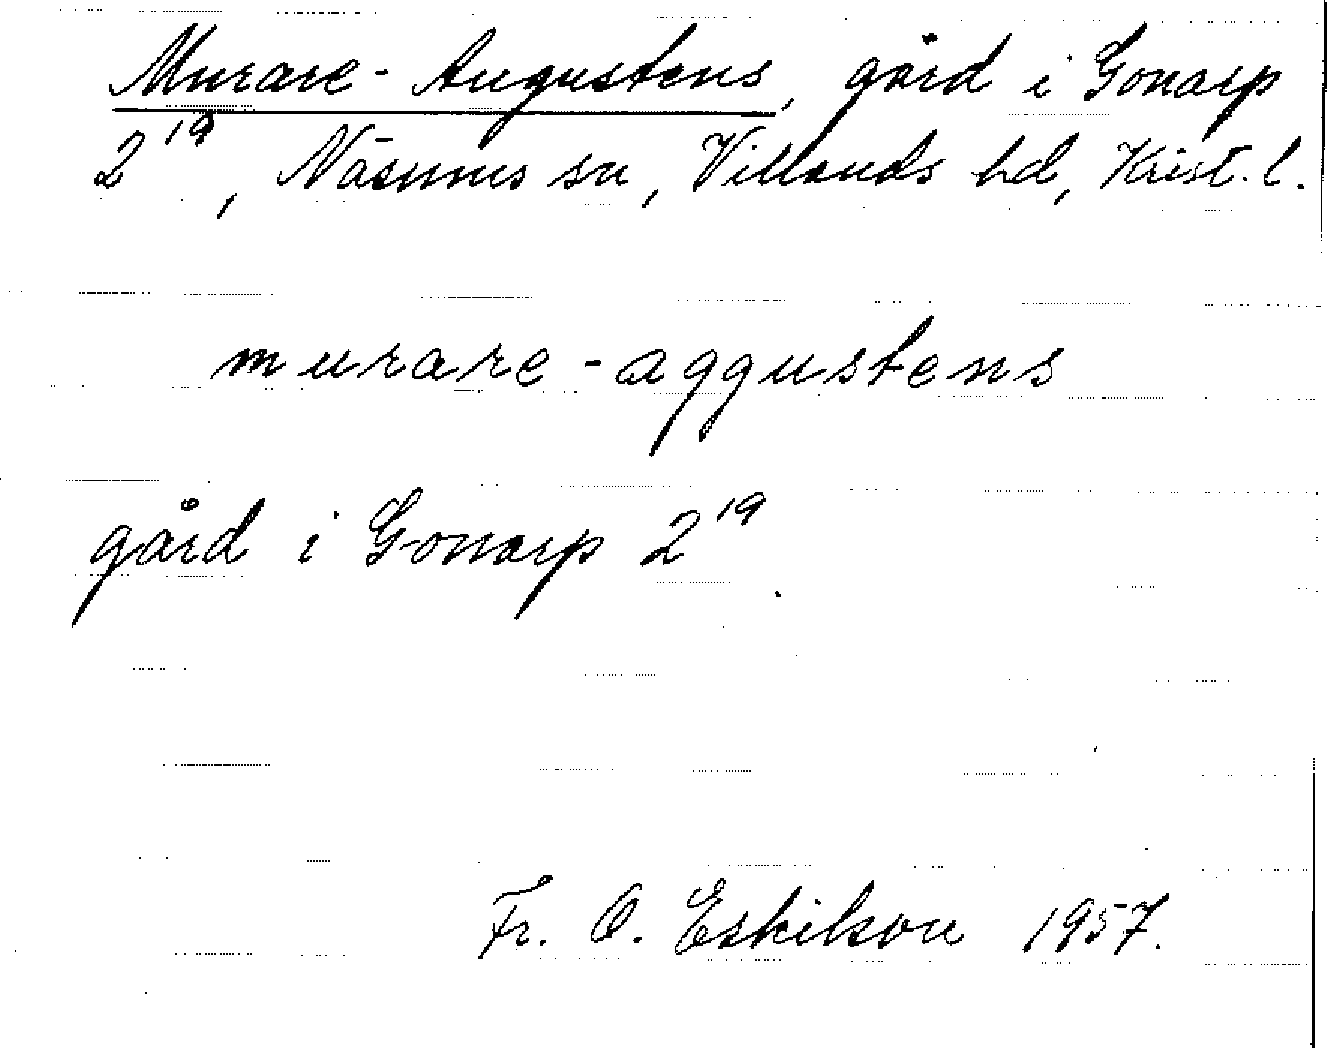 Murare-Augustens, gård i Gonarp
2¹⁹, Näsums sn, Villands hd, Krist. l.
murare-aggustens
gård i Gonarp 2¹⁹.
Fr. O. Eskilson 1957.